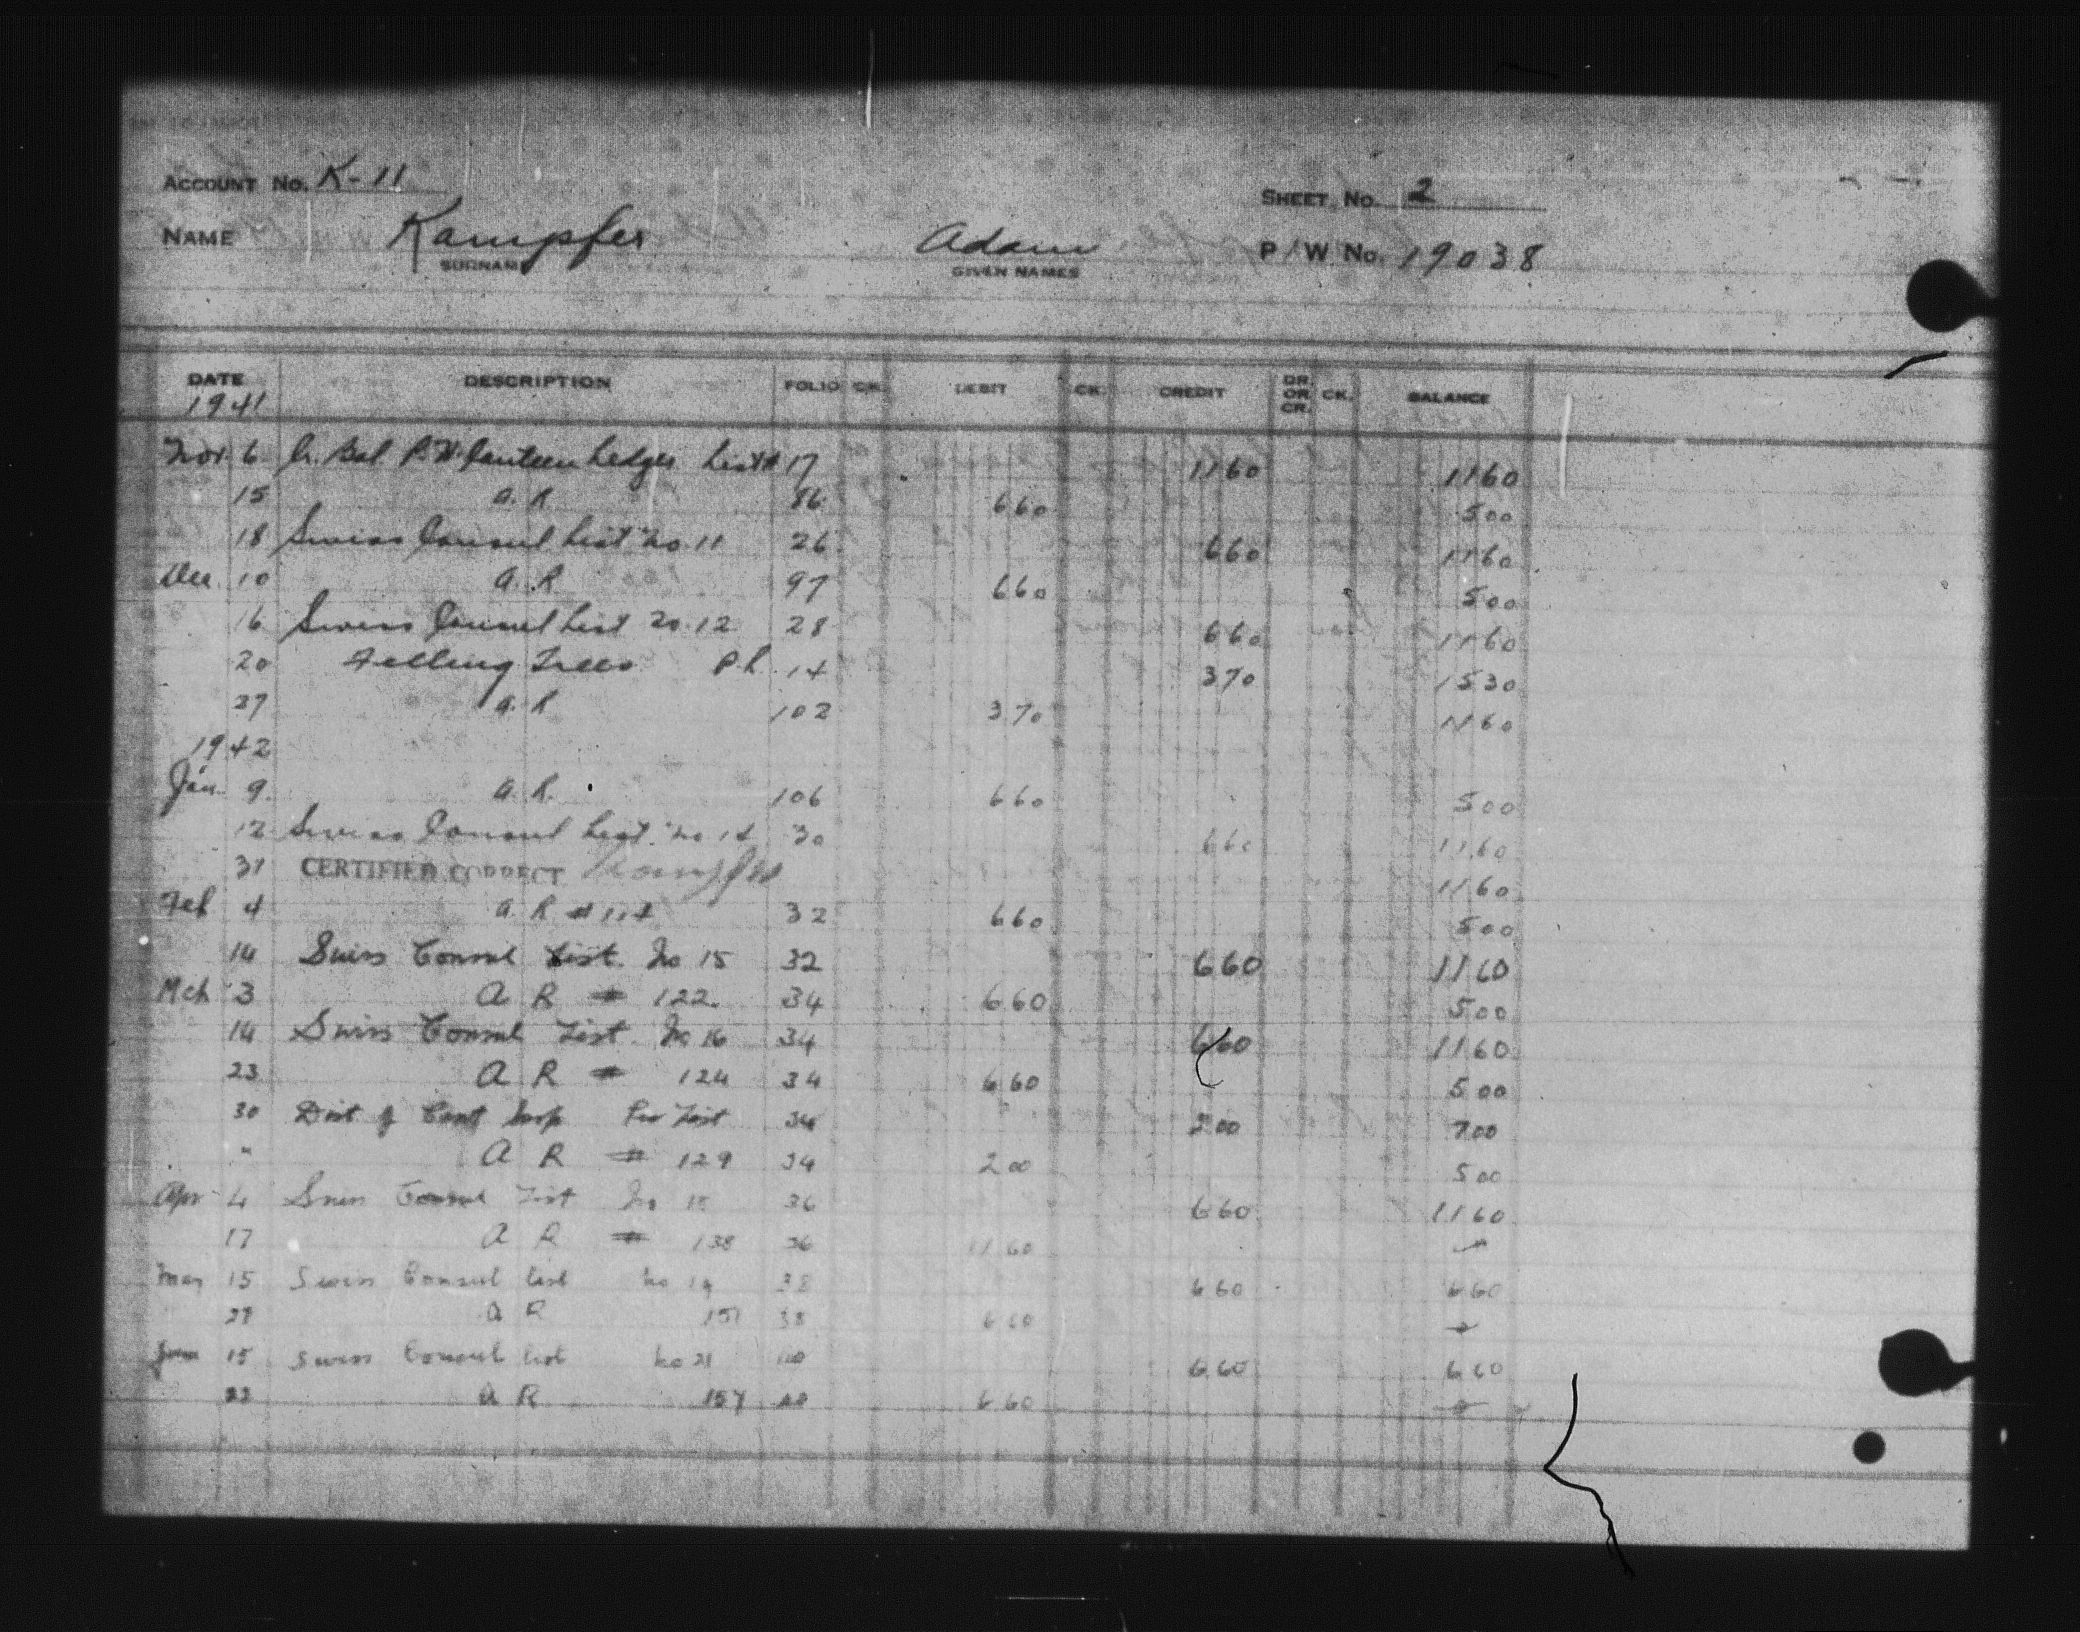 ACCOUNT No. K-11
SHEET No. 2
NAME Kampfer Adam P/W No. 19038
SURNAME GIVEN NAMES
DATE DESCRIPTION FOLIO CK. DEBIT CK. CREDIT DR. OR CR. CK. BALANCE
1941
Nov. 6 Cr. Bal. P.W. Canteen Ledger List # 17 1160 1160
15 A. R 86 660 500
18 Swiss Consul List No 11 26 660 1160
Dec. 10 A. R 97 660 500
16 Swiss Consul List No. 12 28 660 1160
20 Felling Trees P.L. 14 370 1530
27 A. R 102 370 1160
1942
Jan. 9 A. R. 106 660 500
12 Swiss Consul List No 14 30 660 1160
31 CERTIFIED CORRECT Kampfer 1160
Feb 4 A. R # 114 32 660 500
14 Swiss Consul List. No 15 32 660 1160
Mch 3 A R # 122. 34 660 500
14 Swiss Consul List. No 16 34 660 1160
23 A R # 124 34 660 500
30 Dist of Cant Per List 34 200 700
" A R # 129 34 200 500
Apr 4 Swiss Consul List No 18 36 660 1160
17 A R # 138 36 1160
May 15 Swiss Consul List No 19 38 660 660
29 A R 151 38 660
June 15 Swiss Consul List No 21 40 660 660
22 A R 157 40 660